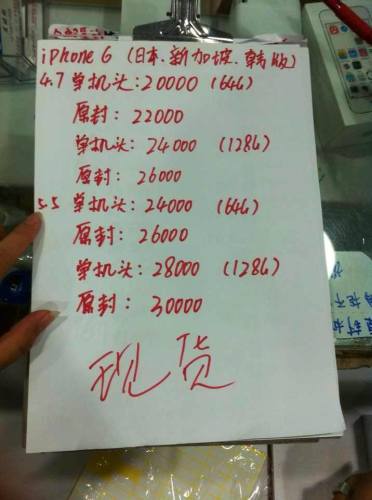 iphone 6 (日本.新加坡.韩版)
4.7 单机头:20000 (64G)
原封: 22000
单机头:24000 (128G)
原封: 26000
5.5 单机头:24000 (64G)
原封: 26000
单机头:28000 (128G)
原封: 30000
现货